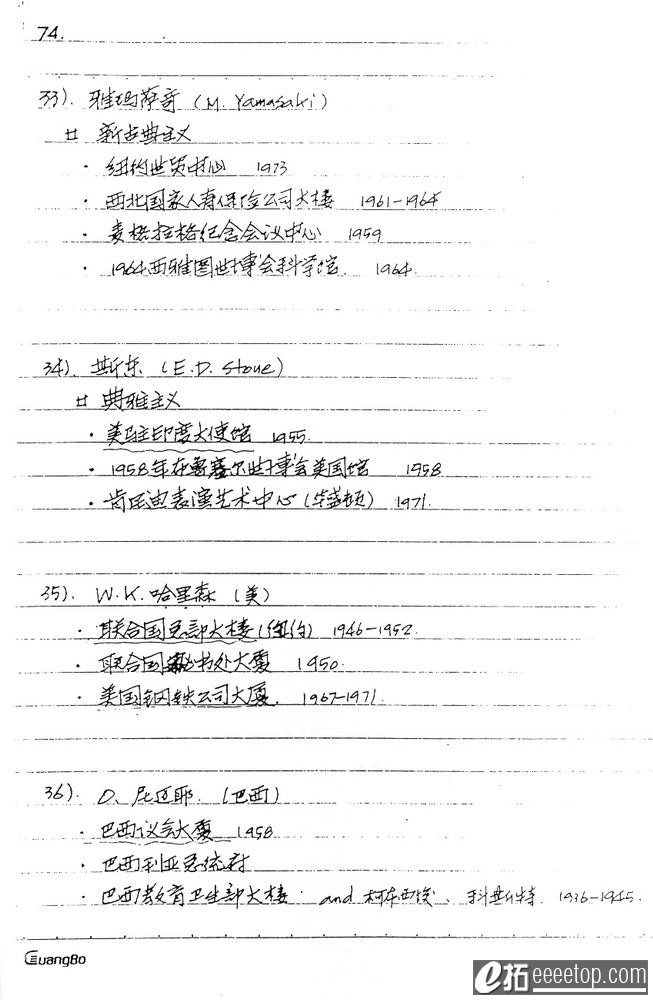 74.
33). 雅玛萨奇 (M. Yamasaki)
廿 新古典主义
· 纽约世贸中心 1973
· 西北国家人寿保险公司大楼 1961-1964
· 麦格拉格纪念会议中心 1959
· 1964西雅图世博会科学馆. 1964.
34). 斯东 (E.D. Stone)
廿 典雅主义
· 美驻印度大使馆 1955.
· 1958年布鲁塞尔世博会美国馆 1958
· 肯尼迪表演艺术中心 (华盛顿) 1971.
35). W.K.哈里森 (美)
· 联合国总部大楼 (纽约) 1946-1952.
· 联合国秘书处大厦 1950.
· 美国钢铁公司大厦. 1967-1971.
36). O、尼迈耶. (巴西)
· 巴西议会大厦 1958
· 巴西利亚总统府
· 巴西教育卫生部大楼 and 柯布西埃、科斯特. 1936-1945.
GuangBo
e拓 eeeetop.com